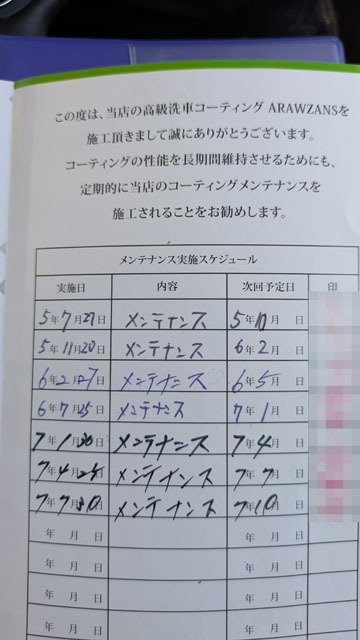 この度は、当店の高級洗車コーティング ARAWZANSを
施工頂きまして誠にありがとうございます。
コーティングの性能を長期間維持させるためにも、
定期的に当店のコーティングメンテナンスを
施工されることをお勧めします。
メンテナンス実施スケジュール
実施日 内容 次回予定日 印
5年7月27日 メンテナンス 5年10月 日
5年11月20日 メンテナンス 6年2月 日
6年2月27日 メンテナンス 6年5月 日
6年7月25日 メンテナンス 7年1月 日
7年1月30日 メンテナンス 7年4月 日
7年4月 日 メンテナンス 7年7月 日
7年7月30日 メンテナンス 7年10月 日
年 月 日 年 月 日
年 月 日 年 月 日
年 月 日 年 月 日
年 月 日 年 月 日